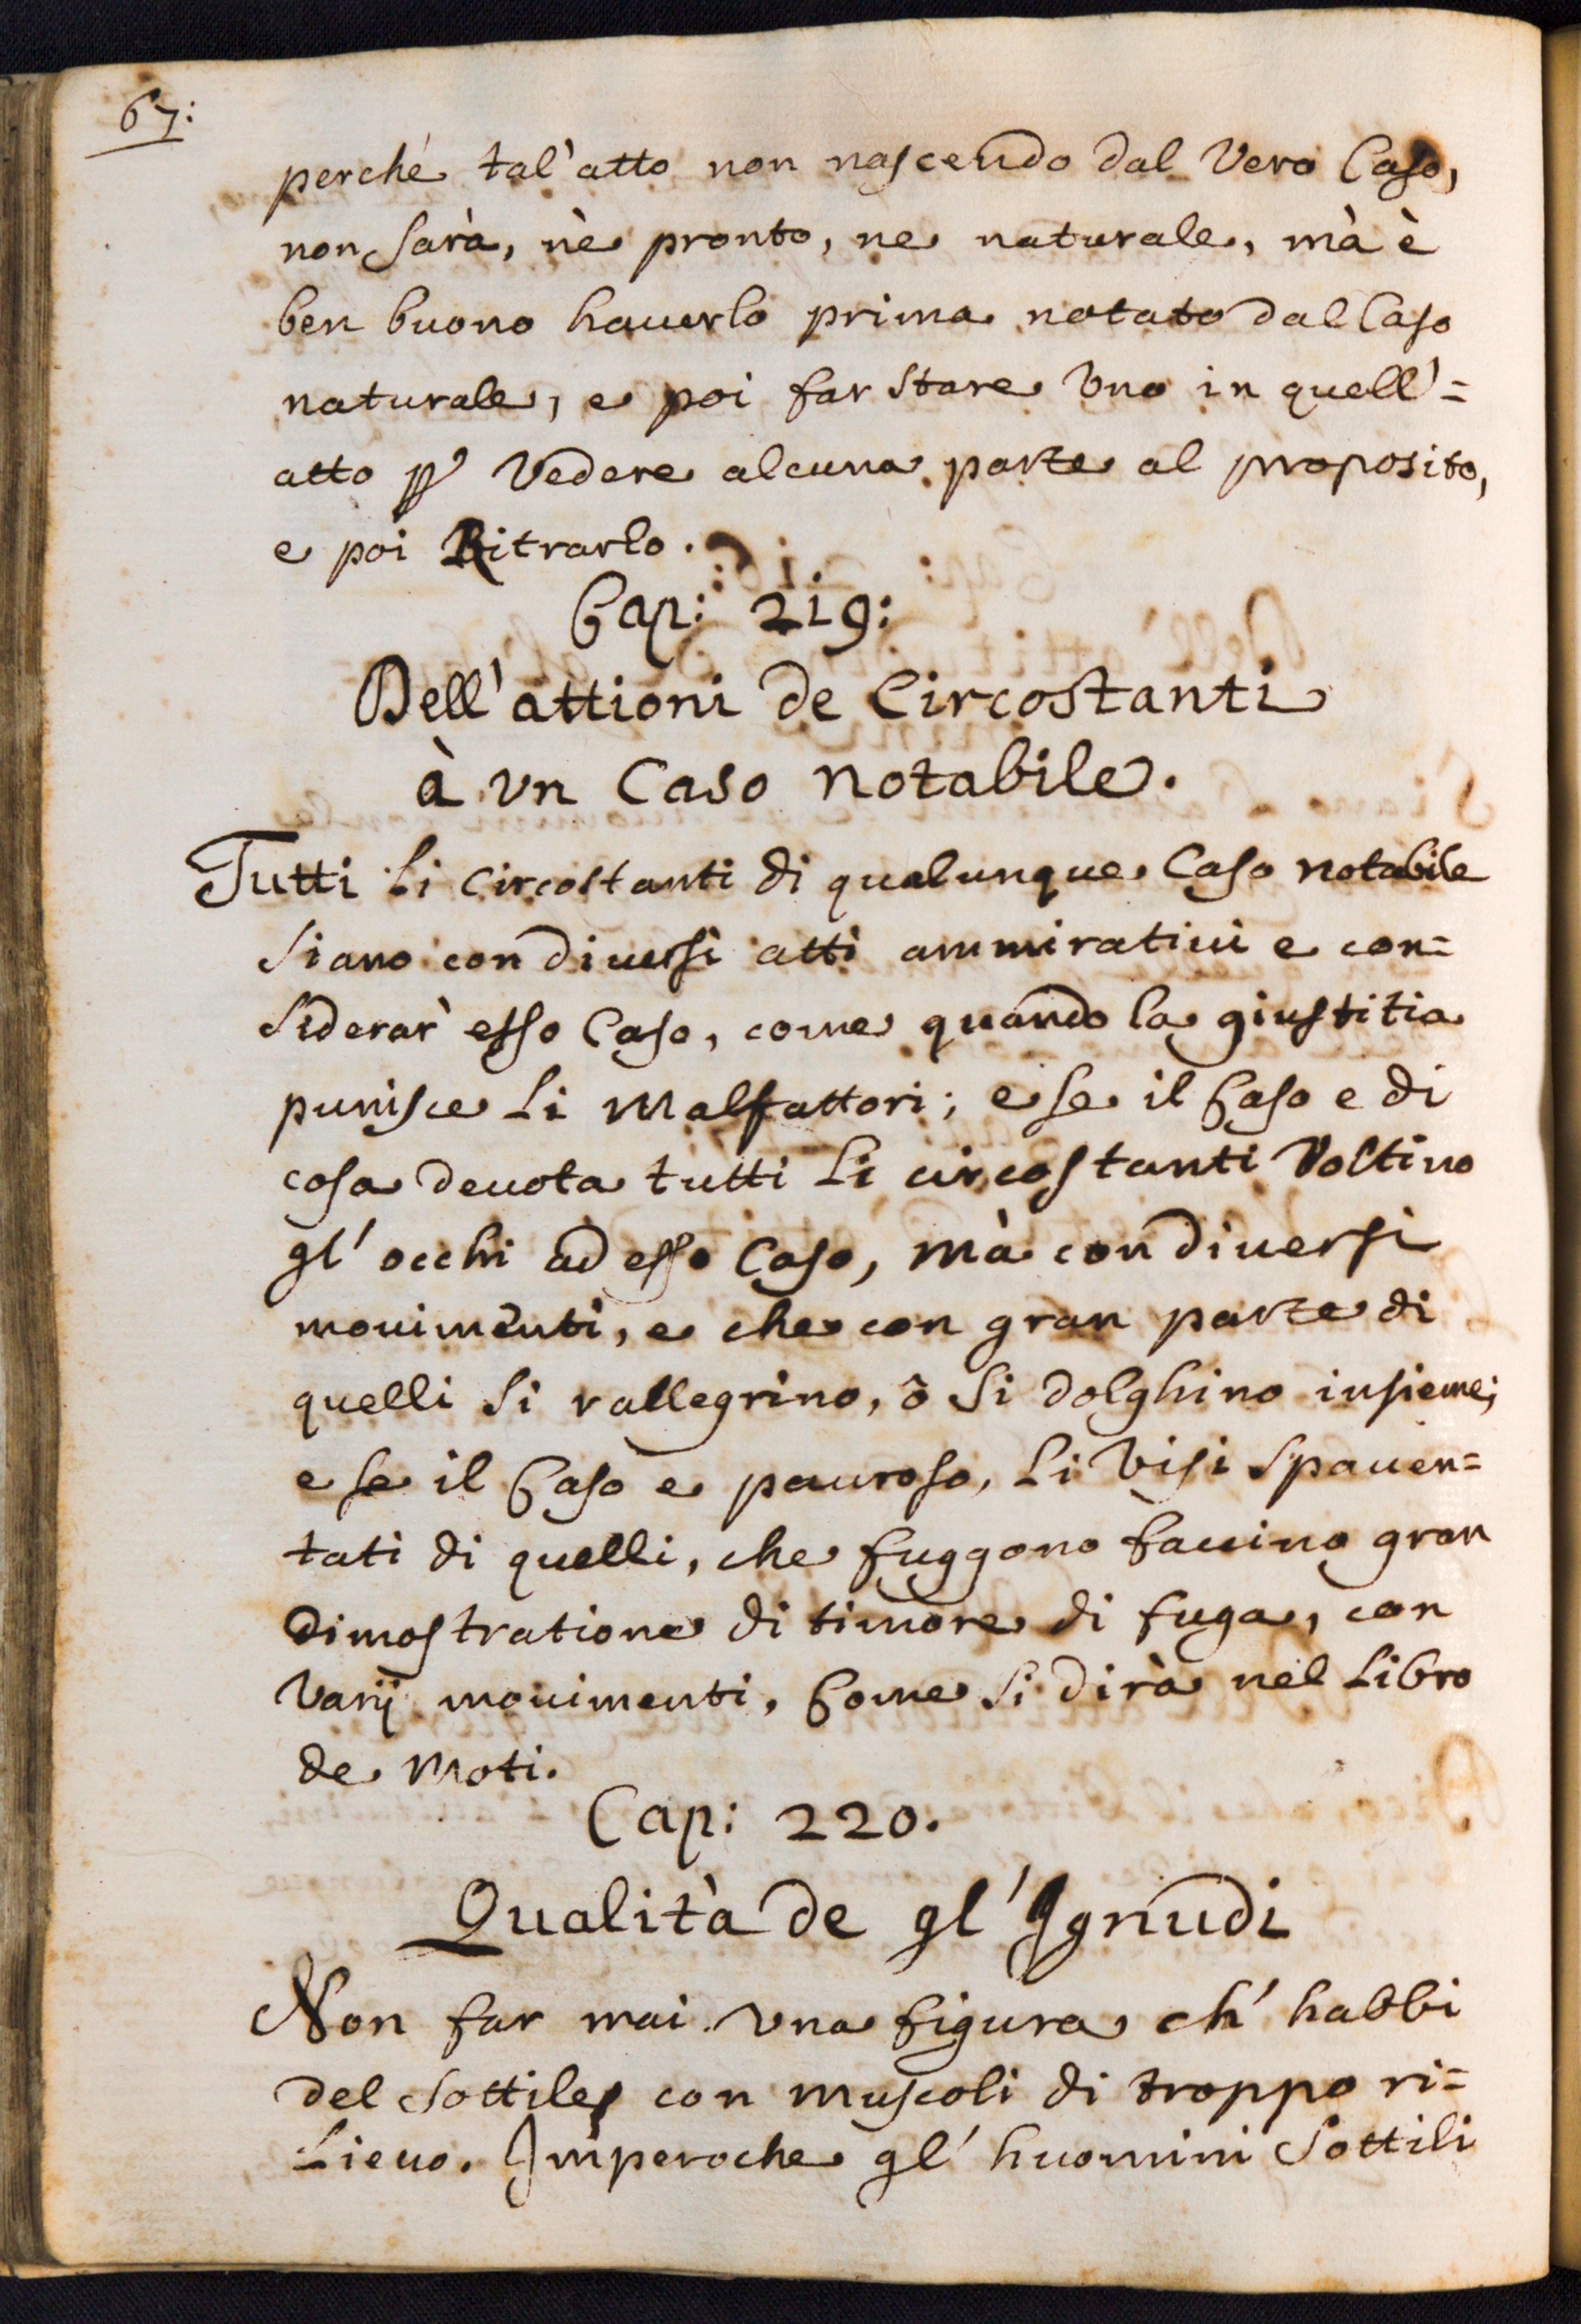 67:
perché tal'atto non nascendo dal Vero Caso,
non sarà, nè pronto, ne naturale, mà è
ben buono hauerlo prima notato dal Caso
naturale, e poi far stare Uno in quell'=
atto p Vedere alcuna parte al proposito,
e poi Ritrarlo.
Cap: 219:
Dell'attioni de Circostanti
à vn Caso notabile.
Tutti li circostanti di qualunque Caso notabile
siano con diuersi atti ammiratiui e con=
siderar' esso Caso, come quando la giustitia
punisce li Malfattori; e se il Caso e di
cosa deuota tutti li circostanti Voltino
gl' occhi ad esso Caso, mà con diuersi
mouimenti, e che con gran parte di
quelli si rallegrino, ò si dolghino insieme;
e se il Caso e pauroso, li Visi spauen=
tati di quelli, che fuggono faccino gran
dimostratione di timore di fuga, con
Varij mouimenti, Come si dirà nel Libro
de Moti.
Cap: 220.
Qualità de gl'Ignudi
Non far mai vna figura ch' habbi
del sottile con muscoli di troppo ri=
lieuo. Imperoche gl' huomini sottili